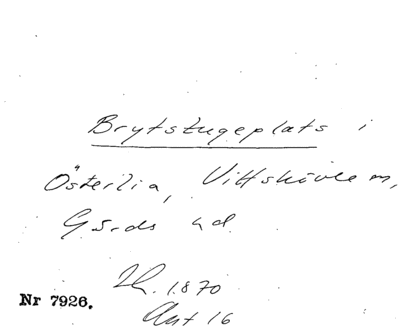 Brytstugeplats i
Österlia, Vittskövle m,
Gärds hd.
1870
Nr 7926.
Ant 16